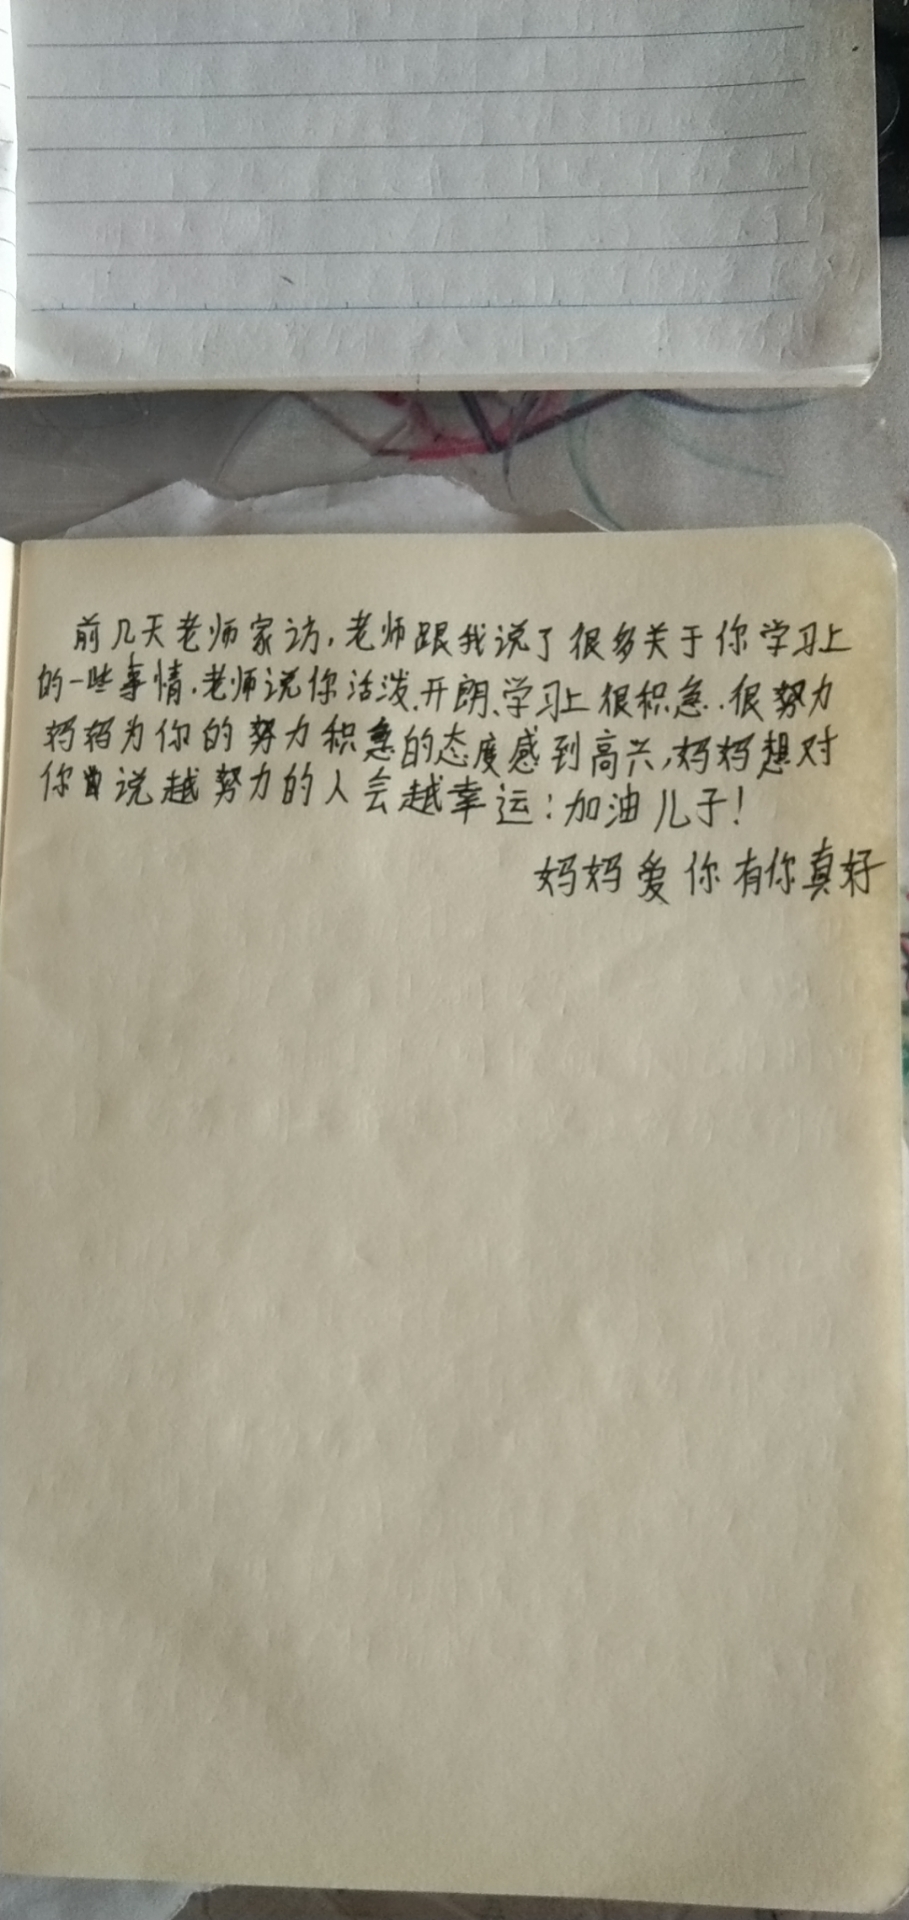 前几天老师家访,老师跟我说了很多关于你学习上
的一些事情.老师说你活泼、开朗、学习上很积急.很努力
妈妈为你的努力积急的态度感到高兴,妈妈想对
你说越努力的人会越幸运:加油儿子!
妈妈爱你有你真好